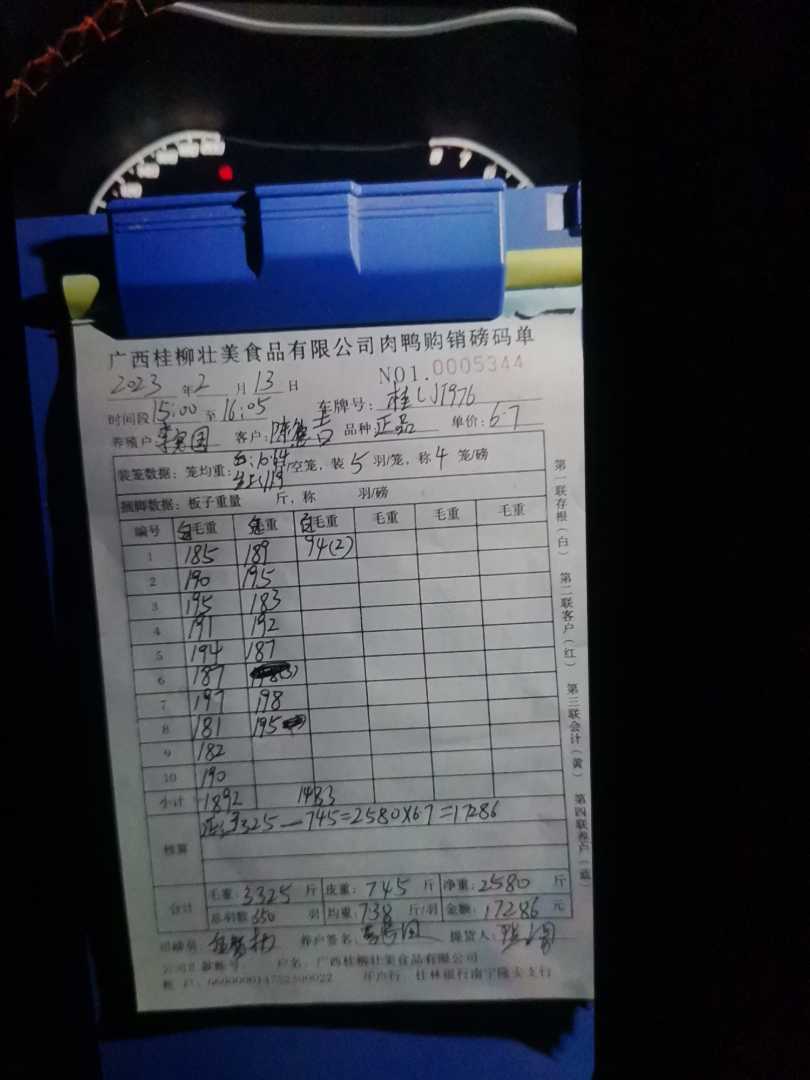 广西桂柳壮美食品有限公司肉鸭购销磅码单
NO1.0005344
2023年2月13日
时间段15:00至16:05 车牌号:桂LJ1976
养殖户 客户: 品种正品 单价:6.7
装笼数据:笼均重: /空笼,装5羽/笼,称4笼/磅
捆脚数据:板子重量 斤,称 羽/磅
编号 毛重 重 毛重 毛重 毛重 毛重
1 185 189 94(2)
2 190 195
3 195 183
4 191 192
5 194 187
6 187
7 197 198
8 181 195
9 182
10 190
小计 1892 1433
核算 3325-745=2580×6.7=17286
合计 毛重:3325斤 皮重:745斤 净重:2580斤
总羽数350羽 均重:7.38斤/羽 金额:17286元
司磅员: 养户签名: 提货人:
户名:广西桂柳壮美食品有限公司
开户行 桂林银行南宁隆安支行
第一联存根(白) 第二联客户(红) 第三联会计(黄) 第四联养户(蓝)